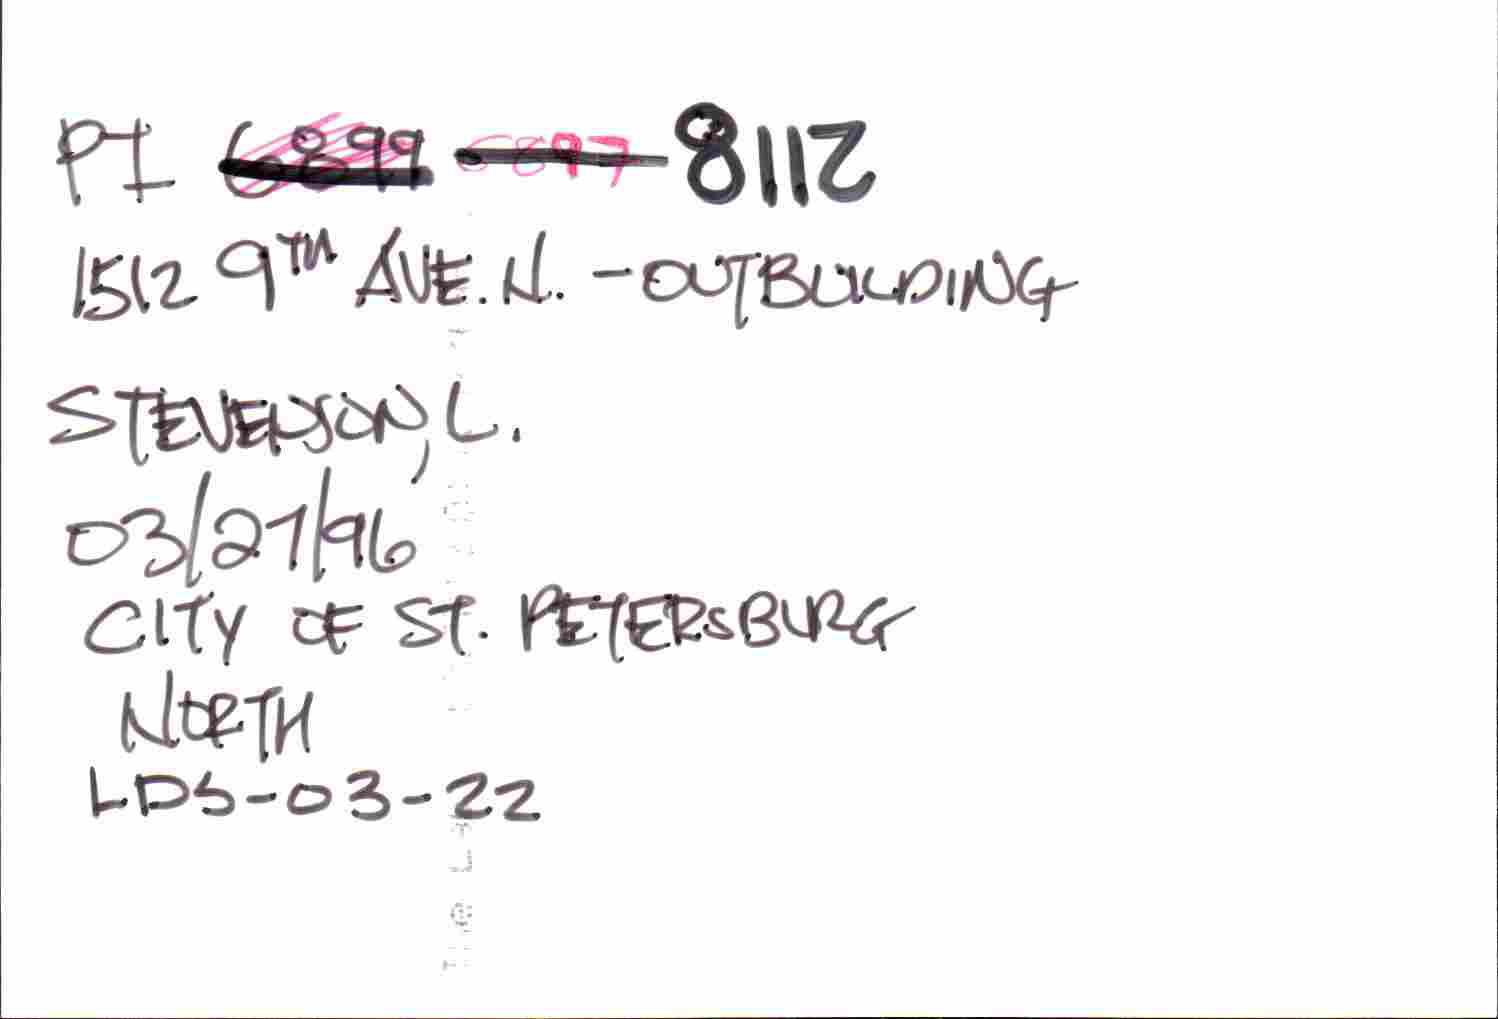 PI 6899 6897 8112
1512 9TH AVE. N. - OUTBUILDING
STEVENSON, L.
03/27/96
CITY OF ST. PETERSBURG
NORTH
LDS-03-22